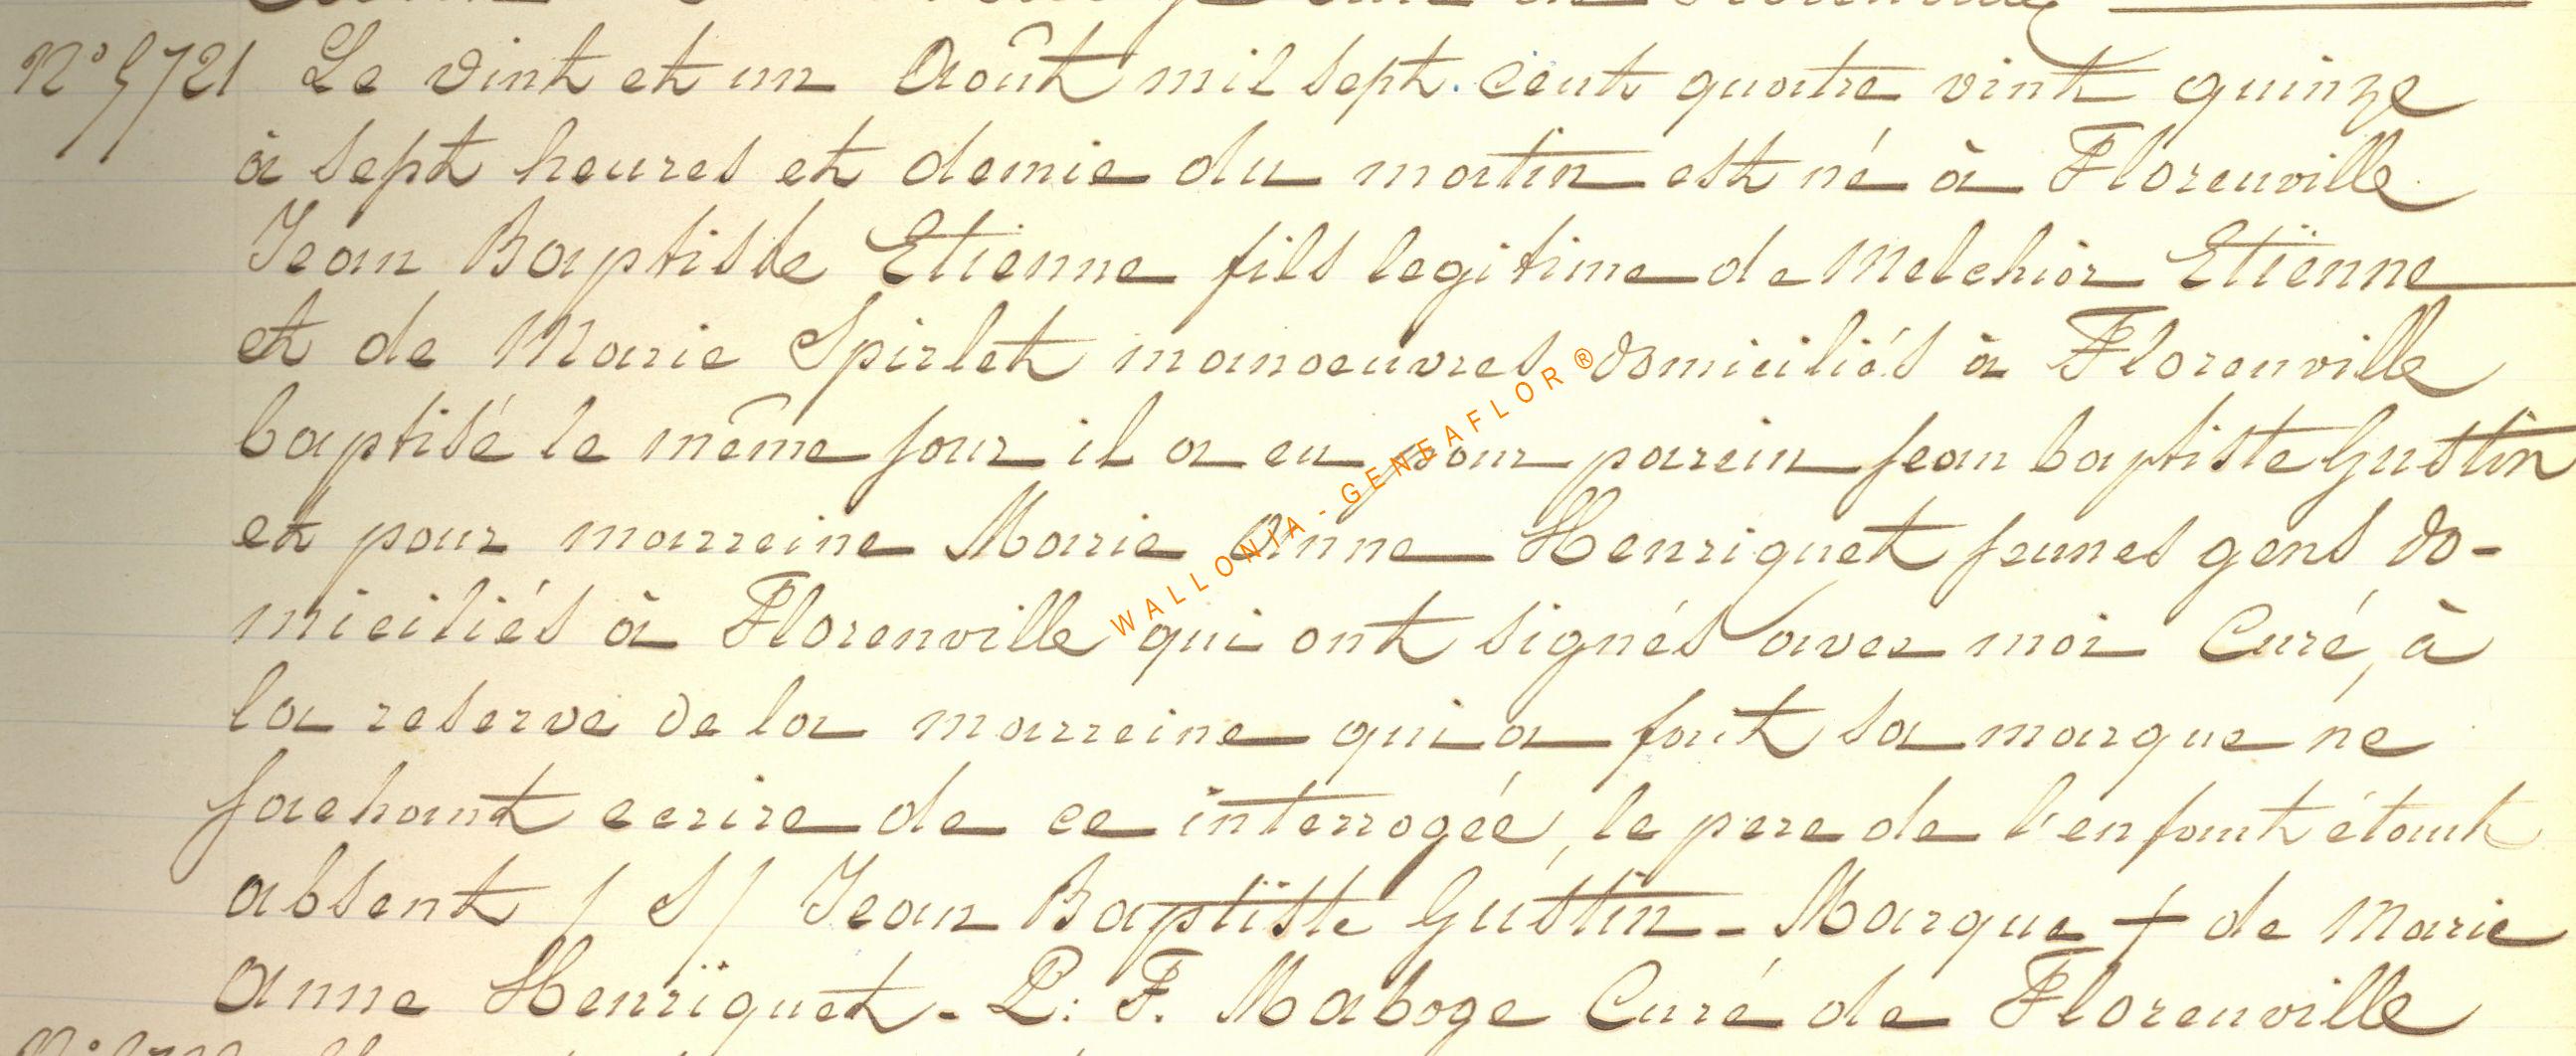 N° 5721 Le vint et un Août mil sept. cent quatre vint quinze
à sept heures et demie du matin est né à Florenville
Jean Baptiste Etienne fils legitime de Melchior Etienne
et de Marie Spirlet manoeuvres domiciliés à Florenville
baptisé le même jour il a eu pour parein jean baptiste Gustin
et pour marreine Marie Anne Henriquet jeunes gens do-
miciliés à Florenville qui ont signés avec moi Curé, à
la reserve de la marreine qui a fait sa marque ne
sachant ecrire de ce interrogée, le pere de l'enfant étant
absent / S / Jean Baptiste Gustin - Marque + de Marie
Anne Henriquet - P: F. Maboge Curé de Florenville
WALLONIA - GENEAFLOR ®